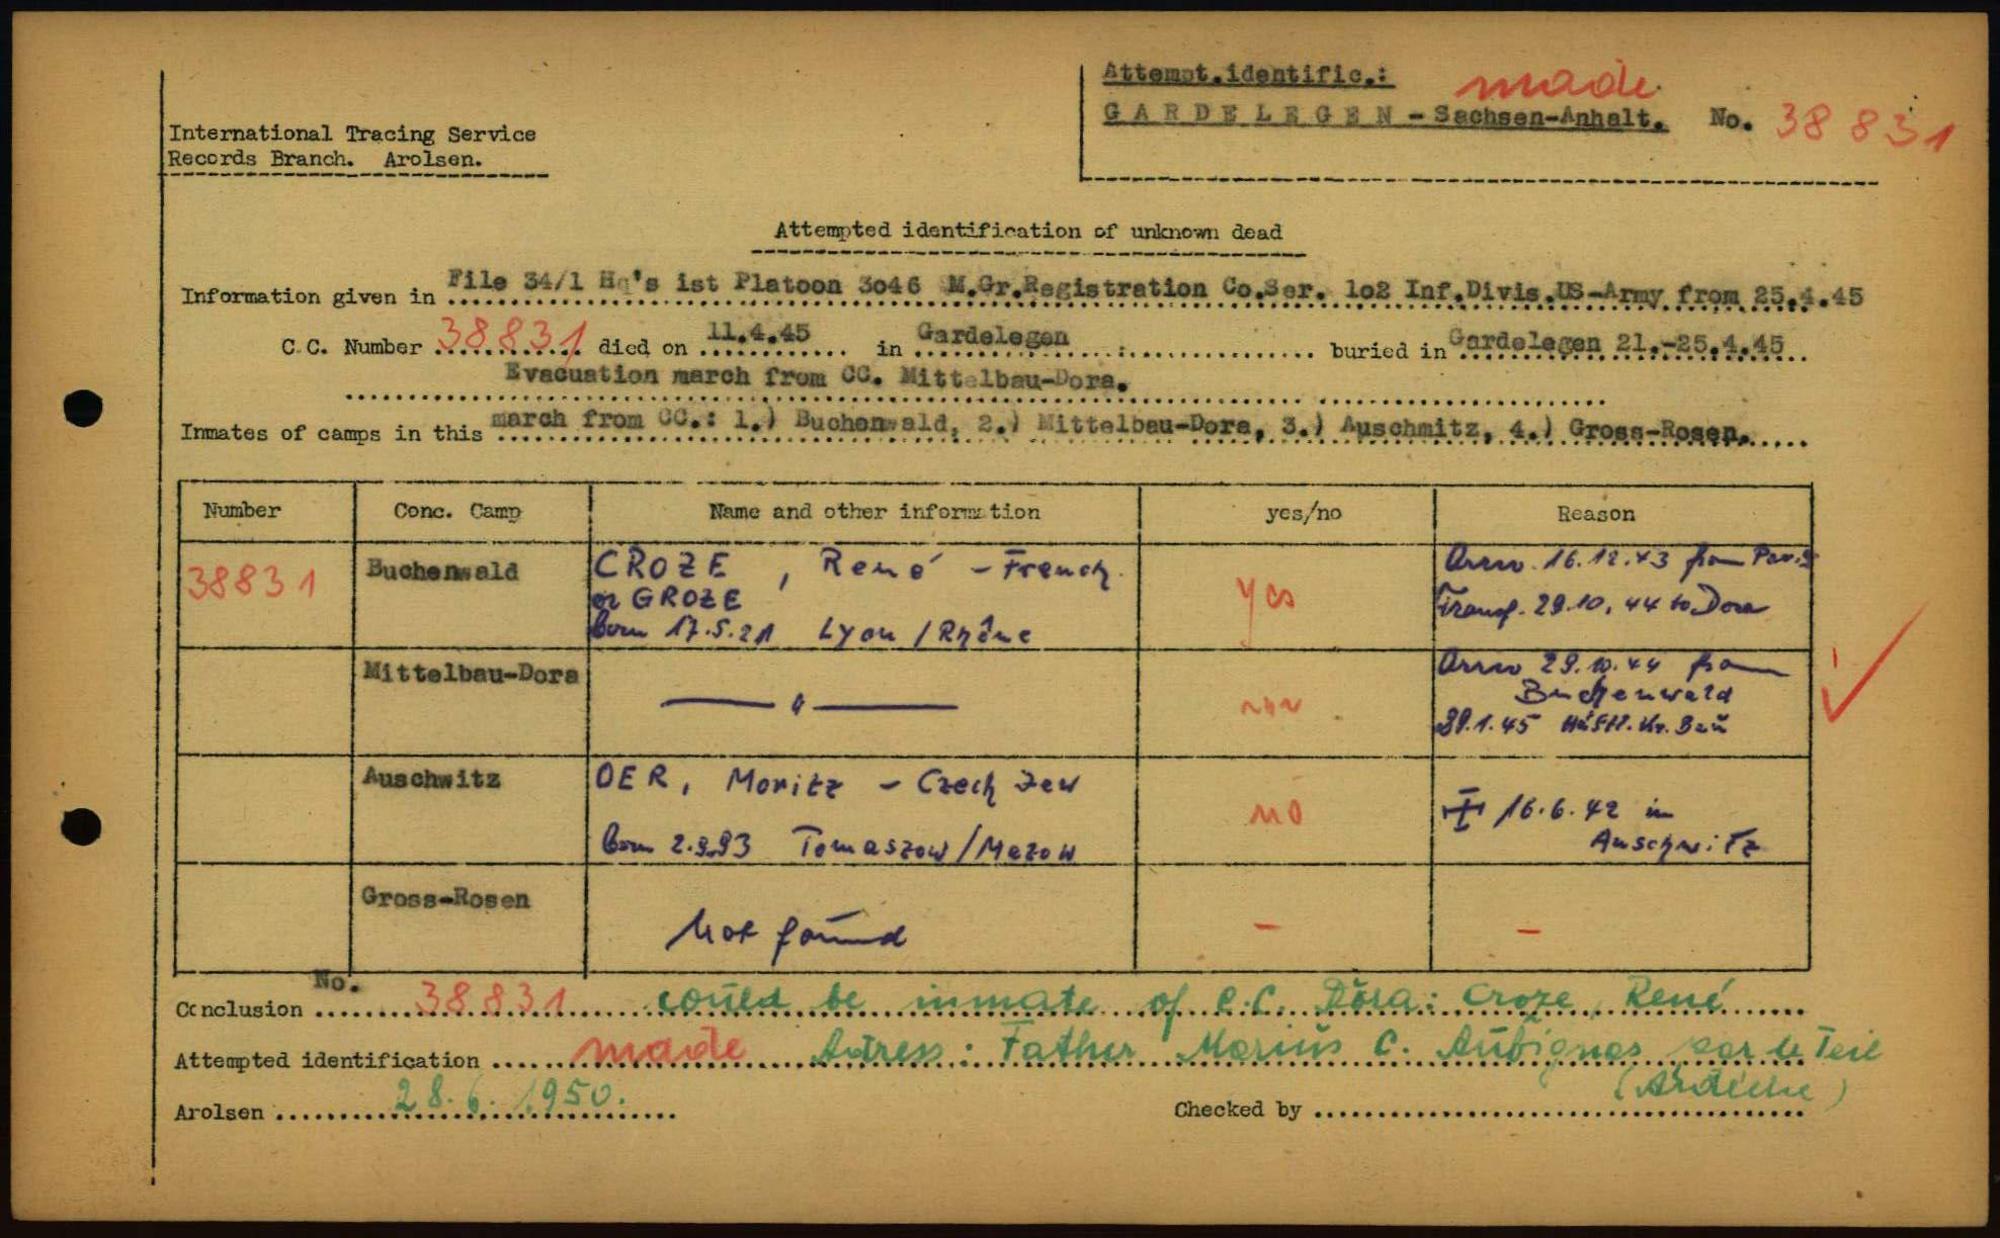 Attempt.identific.: made
GARDELEGEN - Sachsen-Anhalt. No. 38 831
International Tracing Service
Records Branch. Arolsen.
Attempted identification of unknown dead
Information given in File 34/1 Hq's ist Platoon 3o46 M.Gr.Registration Co.Ser. 1o2 Inf.Divis.US-Army from 25.4.45
C.C. Number 38831 died on 11.4.45 in Gardelegen buried in Gardelegen 21.-25.4.45
Evacuation march from CC. Mittelbau-Dora.
Inmates of camps in this march from CC.: 1.) Buchenwald, 2.) Mittelbau-Dora, 3.) Auschwitz, 4.) Gross-Rosen.
Number Conc. Camp Name and other information yes/no Reason
38831 Buchenwald CROZE, René - French yes Arriv. 16.12.43 from Paris
or GROZE
born 17.5.21 Lyon / Rhône
Transf. 29.10.44 to Dora
Mittelbau-Dora — " — Arriv 29.10.44 from
Buchenwald
Häftl. Kr. Bau
Auschwitz OER, Moritz - Czech Jew no 16.6.42 in
Auschwitz
born Tomaszow/Mazow
Gross-Rosen Not found - -
No.
Conclusion 38831 could be inmate of C.C. Dora: Croze, René
Attempted identification made Adress: Father Marius C. Aubignas par le Teil
(Ardèche)
Arolsen 28.6.1950. Checked by